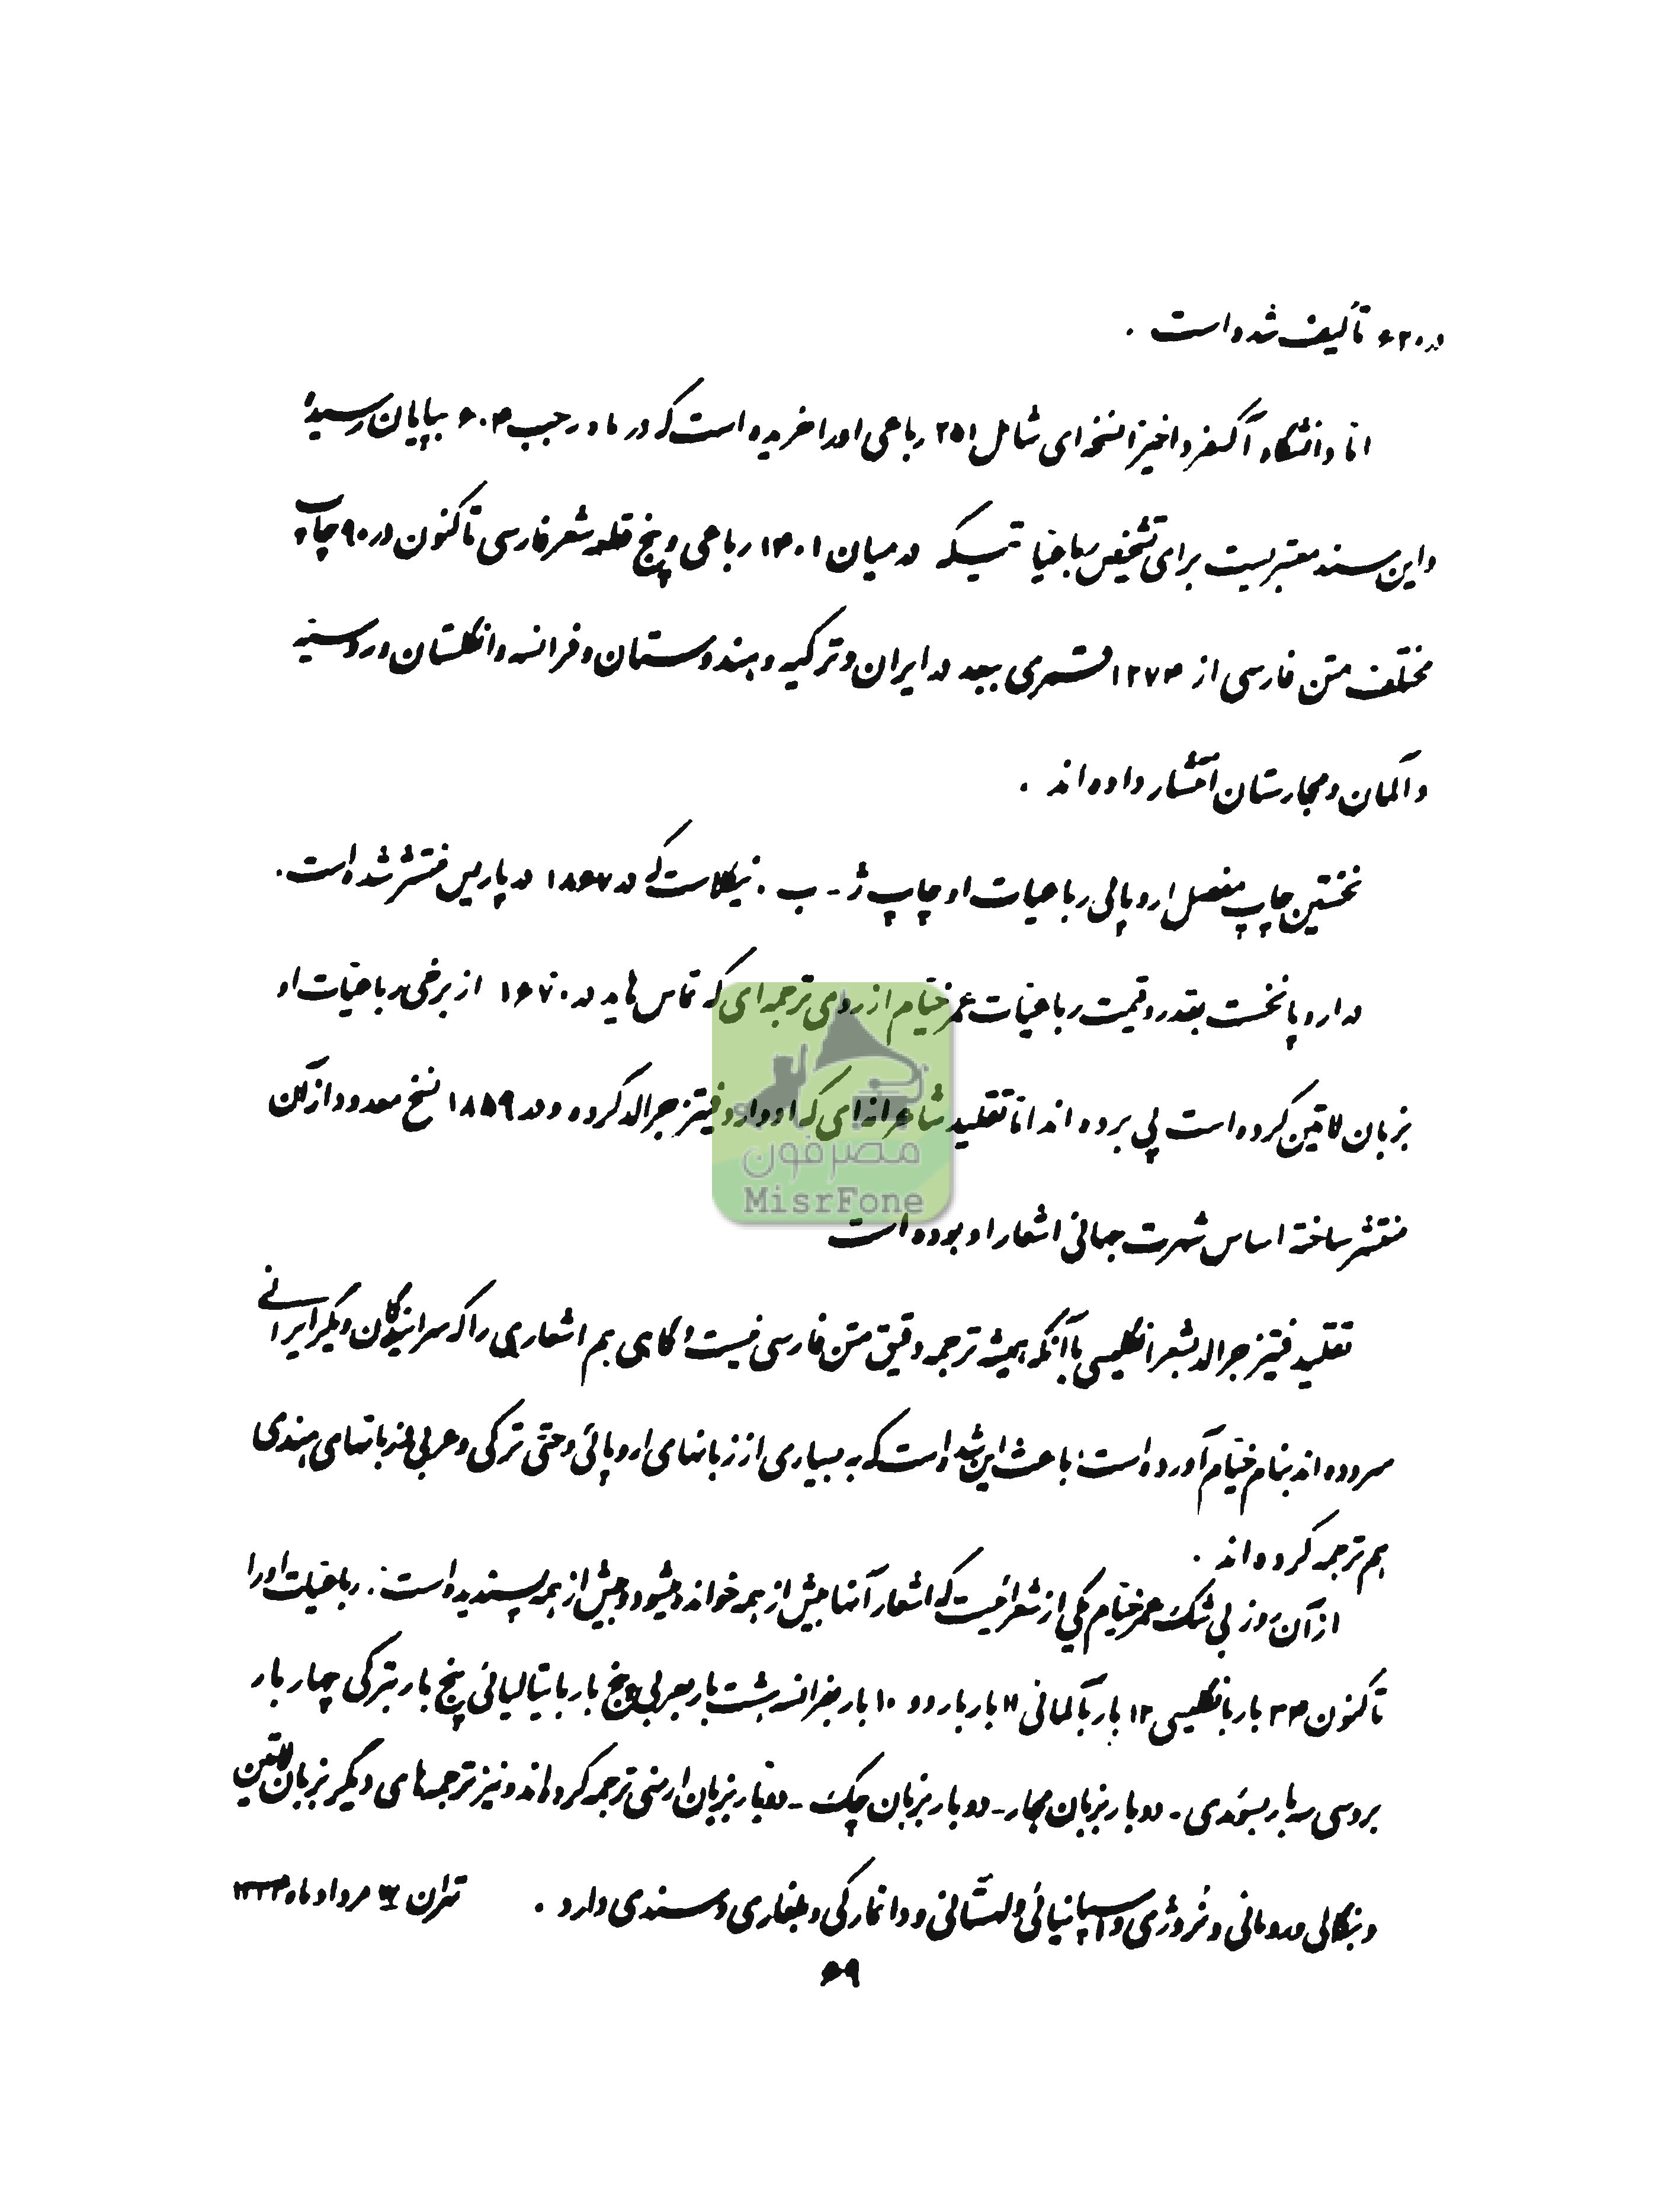 در ۶۲۰ تألیف شده است .
امّا دانشگاه آکسفرد اخیراً نسخه‌ای شامل ۲۵۱ رباعی او را خریده است که در ماه رجب ۶۰۴ بپایان رسیده
و این سند معتبریست برای تشخیص رباعیاتیکه در میان ۱۴۰۱ رباعی و پنج قطعه شعر فارسی تاکنون در ۹۰ چاپ
مختلف متن فارسی از ۱۲۷۴ قمری ببعد در ایران و ترکیه و هندوستان و فرانسه و انگلستان و روسیه
و آلمان و مجارستان انتشار داده‌اند .
نخستین چاپ مفصل اروپائی رباعیات او چاپ ژ - ب . نیکلاست که در ۱۸۶۷ در پاریس منتشر شده است .
در اروپا نخست بقدر و قیمت رباعیّات عمر خیّام از روی ترجمه‌ای که تماس هاید در ۱۶۷۰ از برخی رباعیّات او
بزبان لاتین کرده است پی برده‌اند امّا تقلید شاعرانه‌ای که ادوارد فیتزجرالد کرده و در ۱۸۵۹ نسخ معدود از آن
منتشر ساخته اساس شهرت جهانی اشعار او بوده است
تقلید فیتزجرالد بشعر انگلیسی با آنکه همیشه ترجمه دقیق متن فارسی نیست و گاهی هم اشعاری را که سرایندگان دیگر ایرانی
سروده‌اند بنام خیّام آورده است باعث این شده است که به بسیاری از زبانهای اروپائی و حتّی ترکی و عربی و زبانهای هندی
هم ترجمه کرده‌اند .
از آن روز بی شک عمر خیّام یکی از شعرائیست که اشعار آنها بیش از همه خوانده میشود و بیش از همه پسندیده است . رباعیّات او را
تاکنون ۳۴ بار بانگلیسی ۱۲ بار بآلمانی ۱۱ بار باردو ۱۰ بار بفرانسه هشت بار بعربی پنج بار بایتالیائی پنج بار بترکی چهار بار
بروسی سه بار بسوئدی - دو بار بزبان مجار - دو بار بزبان چک - دو بار بزبان ارمنی ترجمه کرده‌اند و نیز ترجمه‌های دیگر بزبان لاتین
و بنگالی و رومانی و نروژی و اسپانیائی و لهستانی و دانمارکی و بلغاری و سندی دارد . تهران مرداد ماه
۶۹
مصرفون
MisrFone